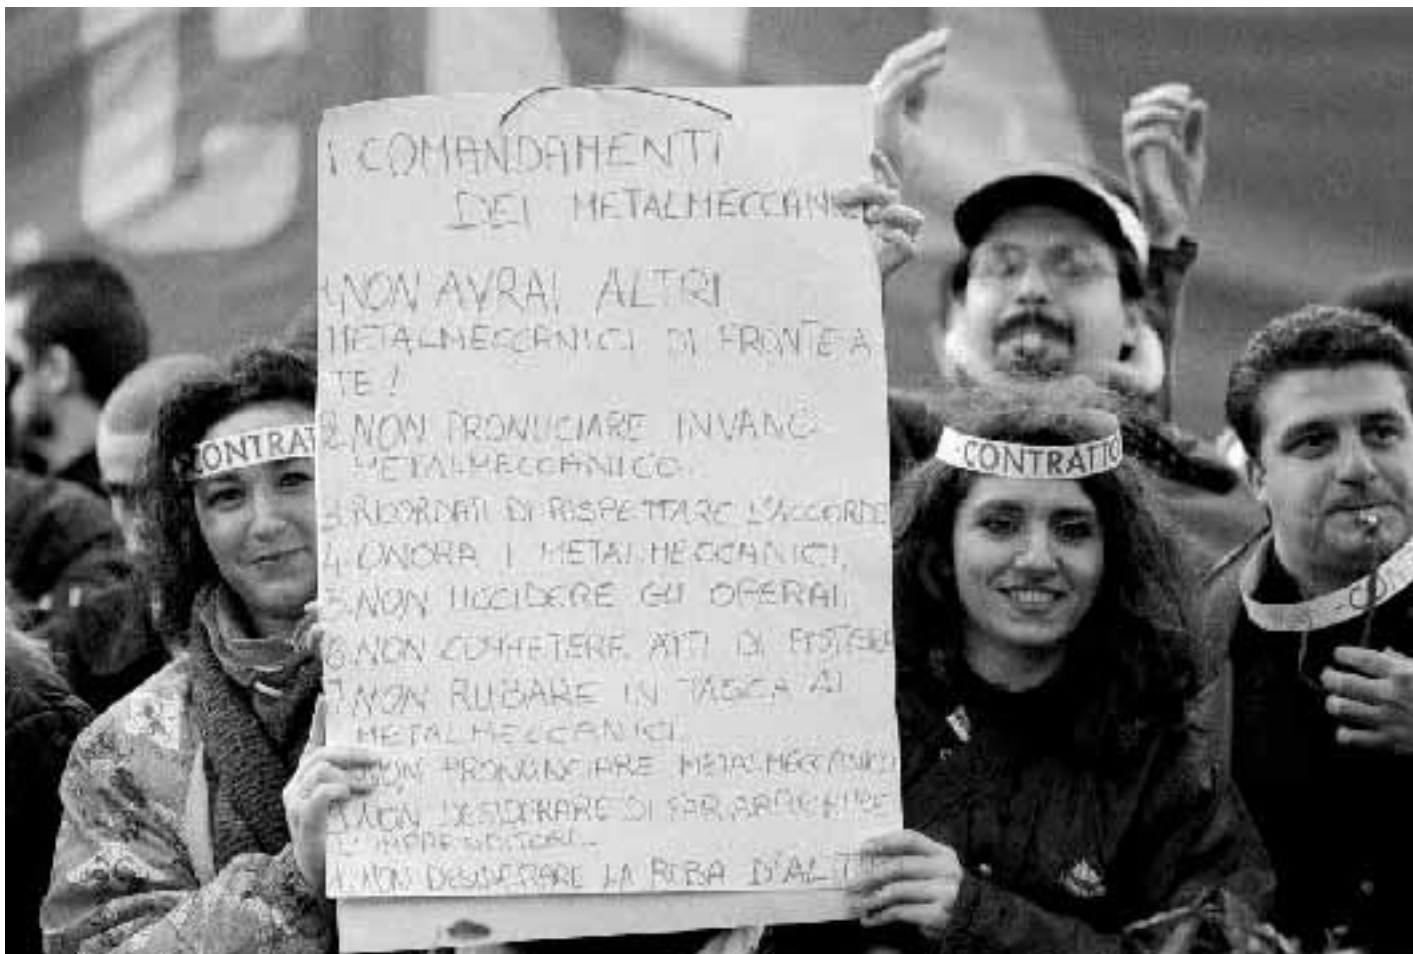 I COMANDAMENTI
DEI METALMECCANICI
1. NON AVRAI ALTRI
METALMECCANICI DI FRONTE A
TE!
2. NON PRONUCIARE INVANO
METALMECCANICO.
3. RICORDATI DI RISPETTARE L'ACCORDO
4. ONORA I METALMECCANICI.
5. NON UCCIDERE GLI OPERAI.
6. NON COMMETERE ATTI DI
7. NON RUBARE IN TASCA AI
METALMECCANICI.
NON PRONUNCIARE METALMECCANICO
9. NON DESIDERARE DI FAR
NON DESIDERARE LA ROBA D'ALT
CONTRAT
-CONTRATTO
-CO